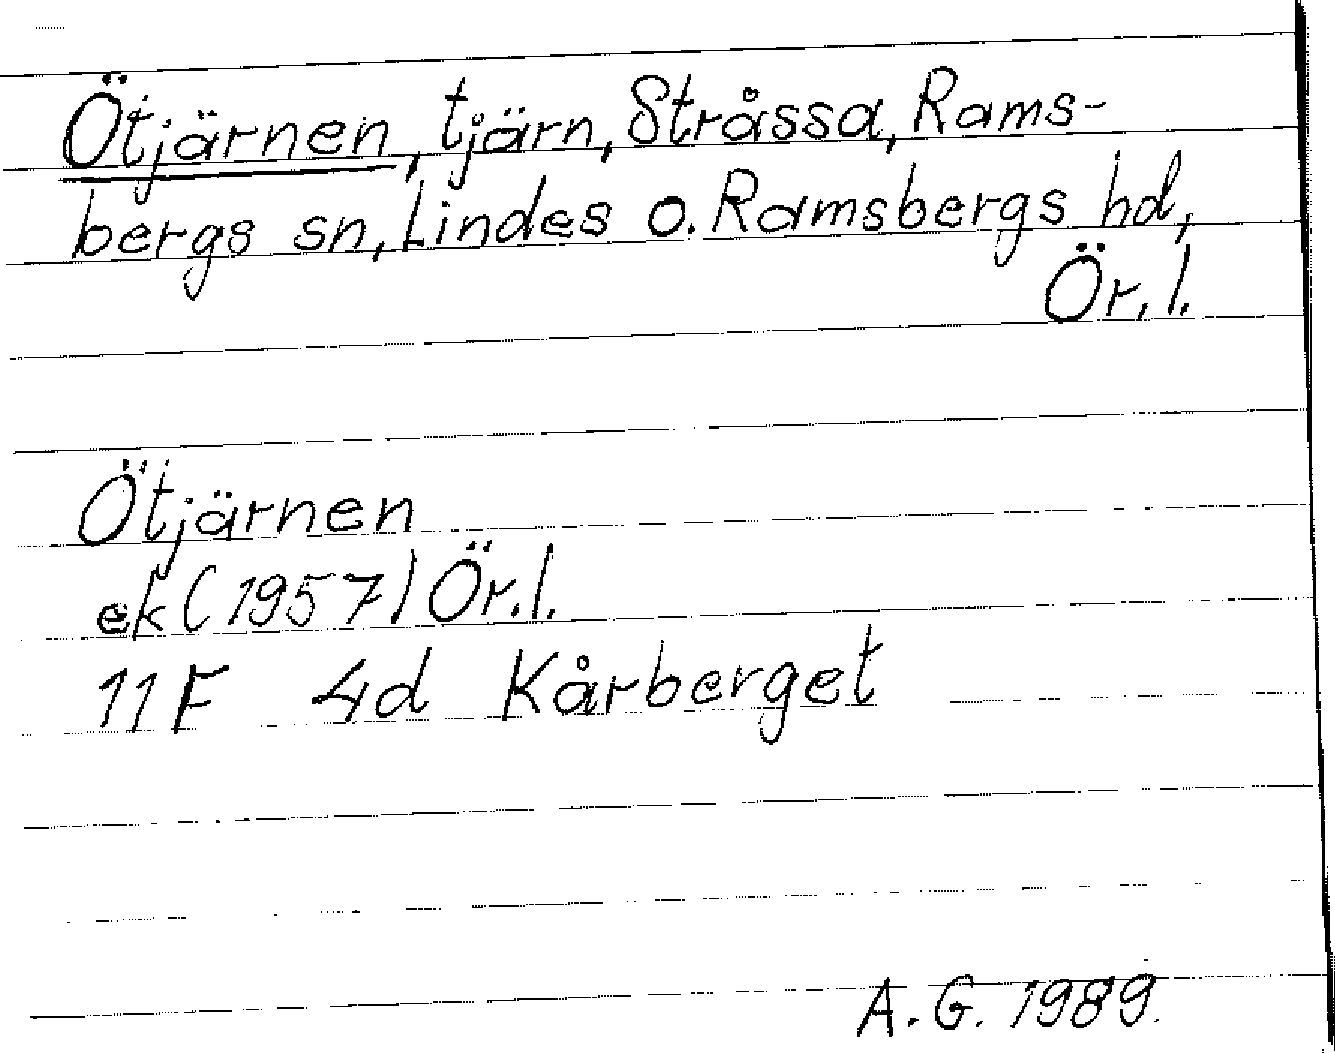 Ötjärnen, tjärn, Stråssa, Rams-
bergs sn, Lindes o. Ramsbergs hd,
Ör. l.
Ötjärnen
ek (1957) Ör. l.
11F 4d Kårberget
A. G. 1989.